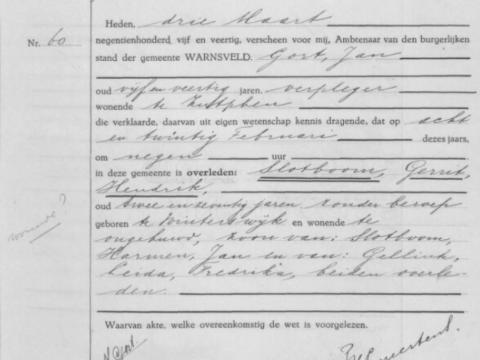 Heden, drie Maart
Nr. 60
negentienhonderd vijf en veertig, verscheen voor mij, Ambtenaar van den burgerlijken
stand der gemeente WARNSVELD. Gort, Jan
oud vijf en veertig jaren, verpleger
wonende te Zutphen
die verklaarde, daarvan uit eigen wetenschap kennis dragende, dat op acht
en twintig Februari dezes jaars,
om negen uur
in deze gemeente is overleden: Slotboom, Gerrit,
Hendrik,
oud twee en zeventig jaren, zonder beroep
geboren te Winterswijk en wonende te
wonende?
ongehuwd, zoon van: Slotboom,
Harmen, Jan en van: Gellink,
Leida, Fredrika, beiden overle-
den.
Waarvan akte, welke overeenkomstig de wet is voorgelezen.